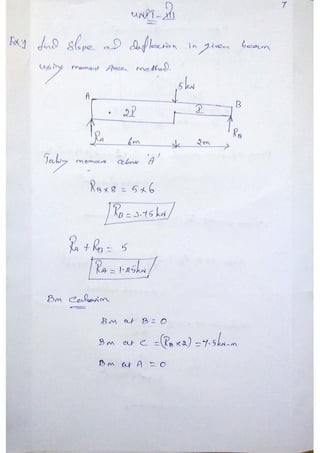 7
UNIT-III
Ex:1 find Slope and Deflection in given beam
using moment Area method.
5kN
A
B
2I
I
RA
RB
6m
2m
Taking moment about 'A'
RB×8 = 5×6
RB = 3.75kN
RA + RB = 5
RA = 1.25kN
BM Calculation
BM at B = 0
BM at C = (RB×2) = 7.5kN-m
BM at A = 0